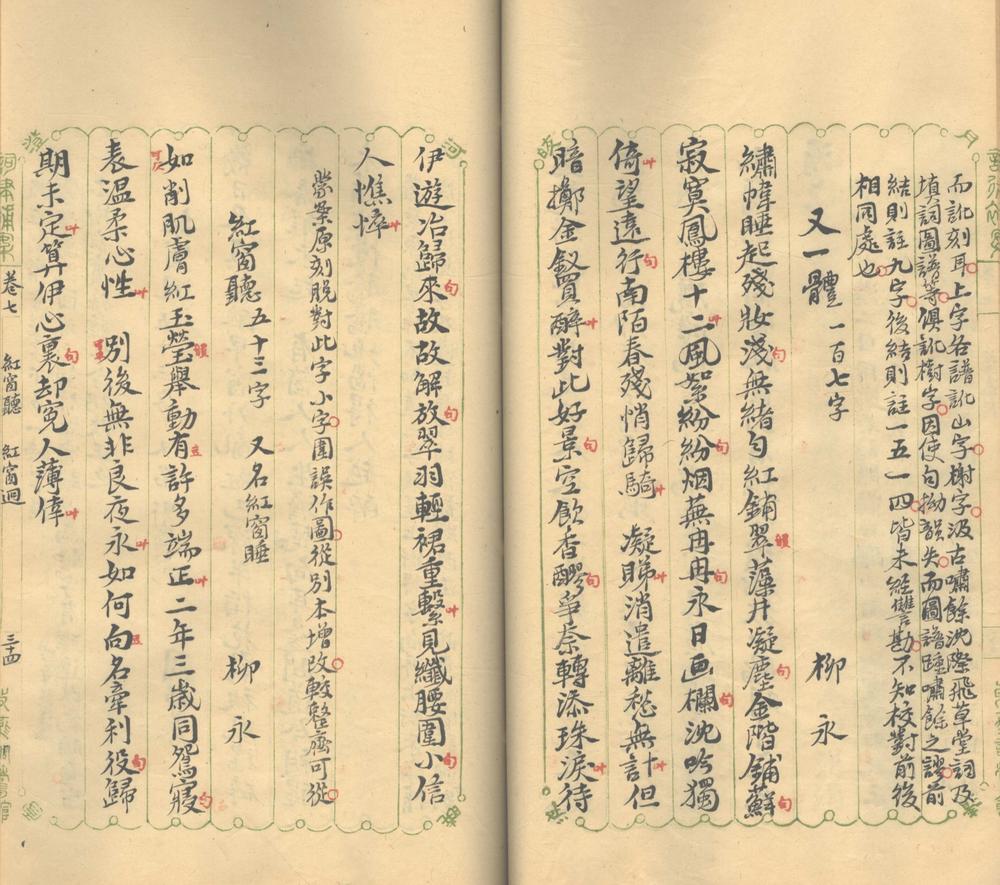 而訛刻耳上字各譜訛山字榭字汲古嘯餘沈際飛草堂詞及
填詞圖譜等俱訛樹字因使句拗韻失而圖譜踵嘯餘之謬前
結則註九字後結則註一五一四皆未經讐勘不知校對前後
相同處也
又一體 一百七字 柳永
繡幃睡起殘妝淺句無緒勻紅鋪翠藻井凝塵句金階鋪蘚句
寂寞鳳樓十二叶風絮紛紛句烟蕪冉冉句永日画欄句沈吟獨
倚叶望遠行句南陌春殘悄歸騎叶 凝睇叶消遣離愁無計叶但
暗擲金釵買醉叶對此好景句空飲香醪句爭奈轉添珠淚叶待
伊遊冶歸來句故故解放句翠羽輕裙重繫叶見纖腰圍小句信
人憔悴叶
葉案原刻脱對此字小字圍誤作圖從別本增改較整齊可從
紅窗聽 五十三字 又名紅窗睡 柳永
如削肌膚紅玉瑩舉動有豆許多端正叶二年三歲同鴛寢句
表温柔心性叶 別後無非良夜永叶如何向豆名牽利役句歸
期未定叶算伊心裏句却寃人薄倖叶
卷七 紅窗聽 紅窗迥 三十四